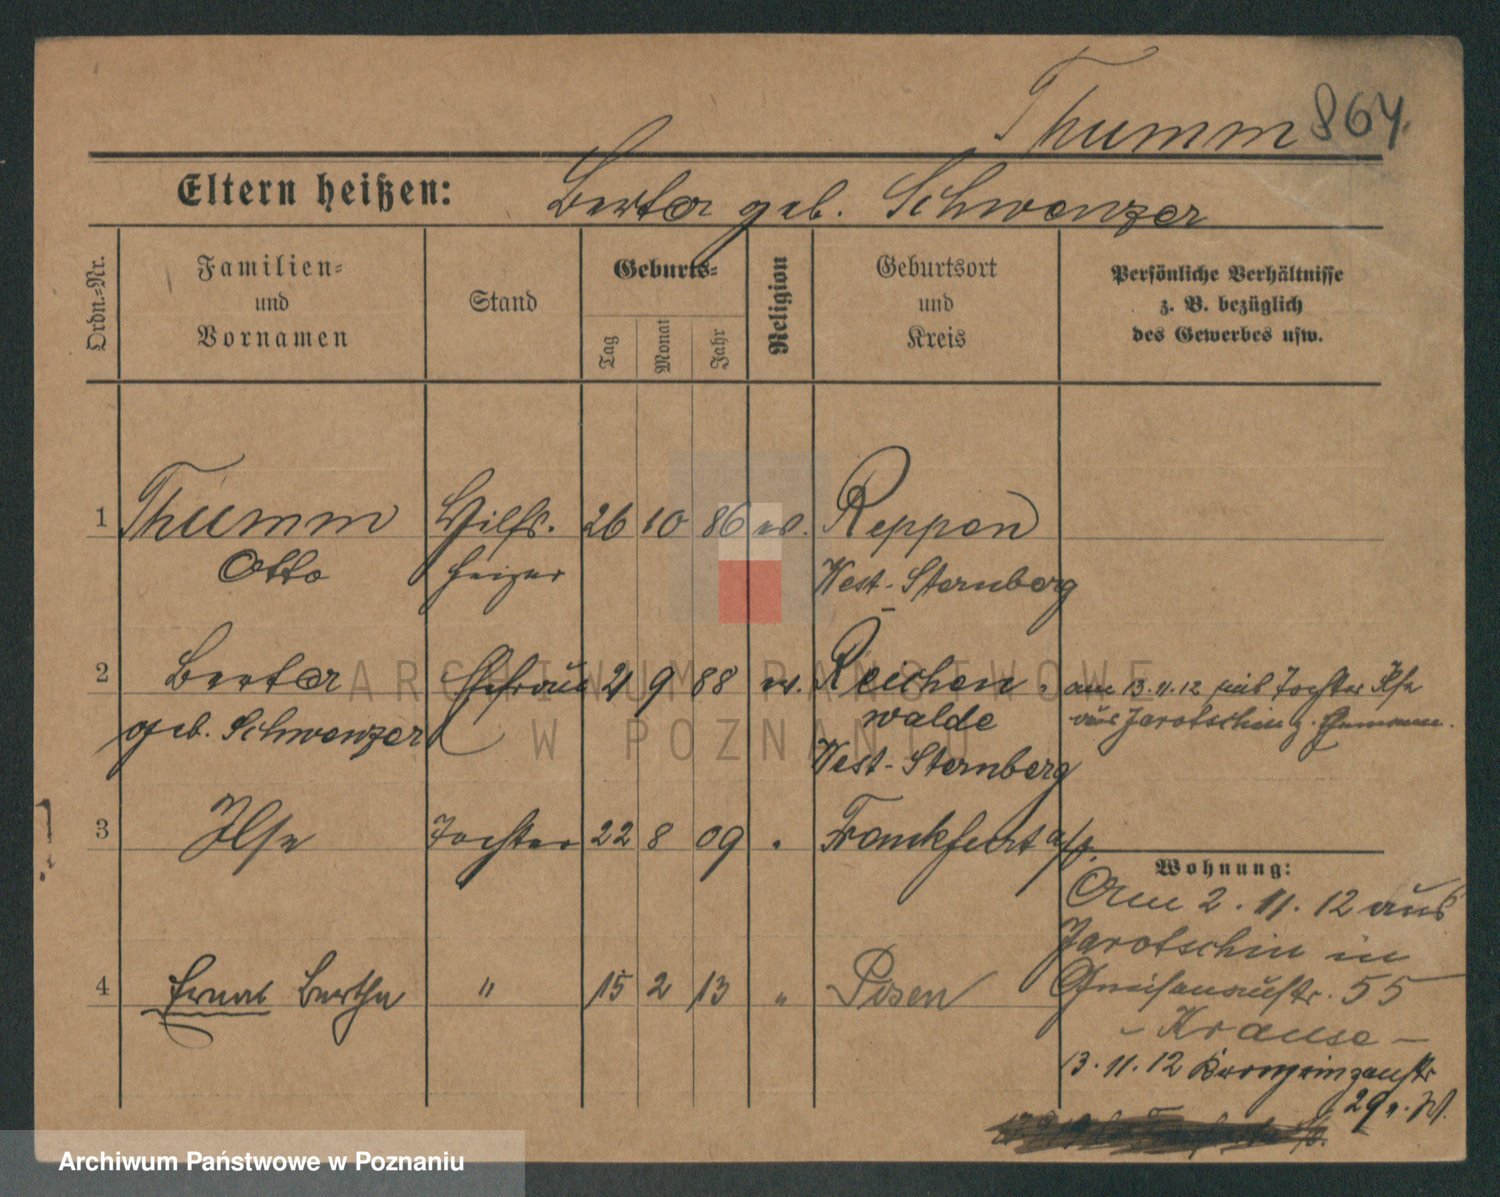 Thumm 864.
Eltern heißen: Berta geb. Schwenzer
Ordn.-Nr.
Familien-
und
Vornamen
Stand
Geburts-
Tag
Monat
Jahr
Religion
Geburtsort
und
Kreis
Persönliche Verhältnisse
z. B. bezüglich
des Gewerbes usw.
1 Thumm Hilfs. 26 10 86 ev. Reppen
Otto heizer West-Sternberg
2 Berta Ehefrau 21 9 88 ev. Reichen am 13.11.12 mit Tochter Ilse
walde aus Jarotschin z.
geb. Schwenzer West-Sternberg
3 Ilse Tochter 22 8 09 " Frankfurt a/
Wohnung:
Am 2.11.12 aus
Jarotschin in
4 Bertha " 15 2 13 " Posen
Gneisenaustr. 55
- Krause -
13.11.12 Kronprinzenstr
29
ARCHIWUM PAŃSTWOWE
W POZNANIU
Archiwum Państwowe w Poznaniu